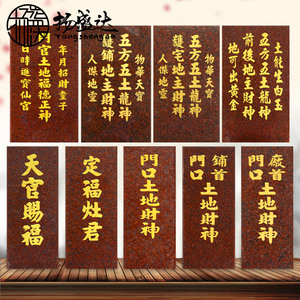 扬盛达
Yangshengda
年月招財童子
官土地福德正神
日時進寶仙官
物華天寶
五方五土龍神
護鋪地主財神
人傑地靈
物華天寶
五方五土龍神
護宅地主財神
人傑地靈
土能生白玉
五方五土龍神
前後地主財神
地可出黃金
天官賜福
定福灶君
門口土地財神
鋪首
門口
土地財神
廠首
門口
土地財神